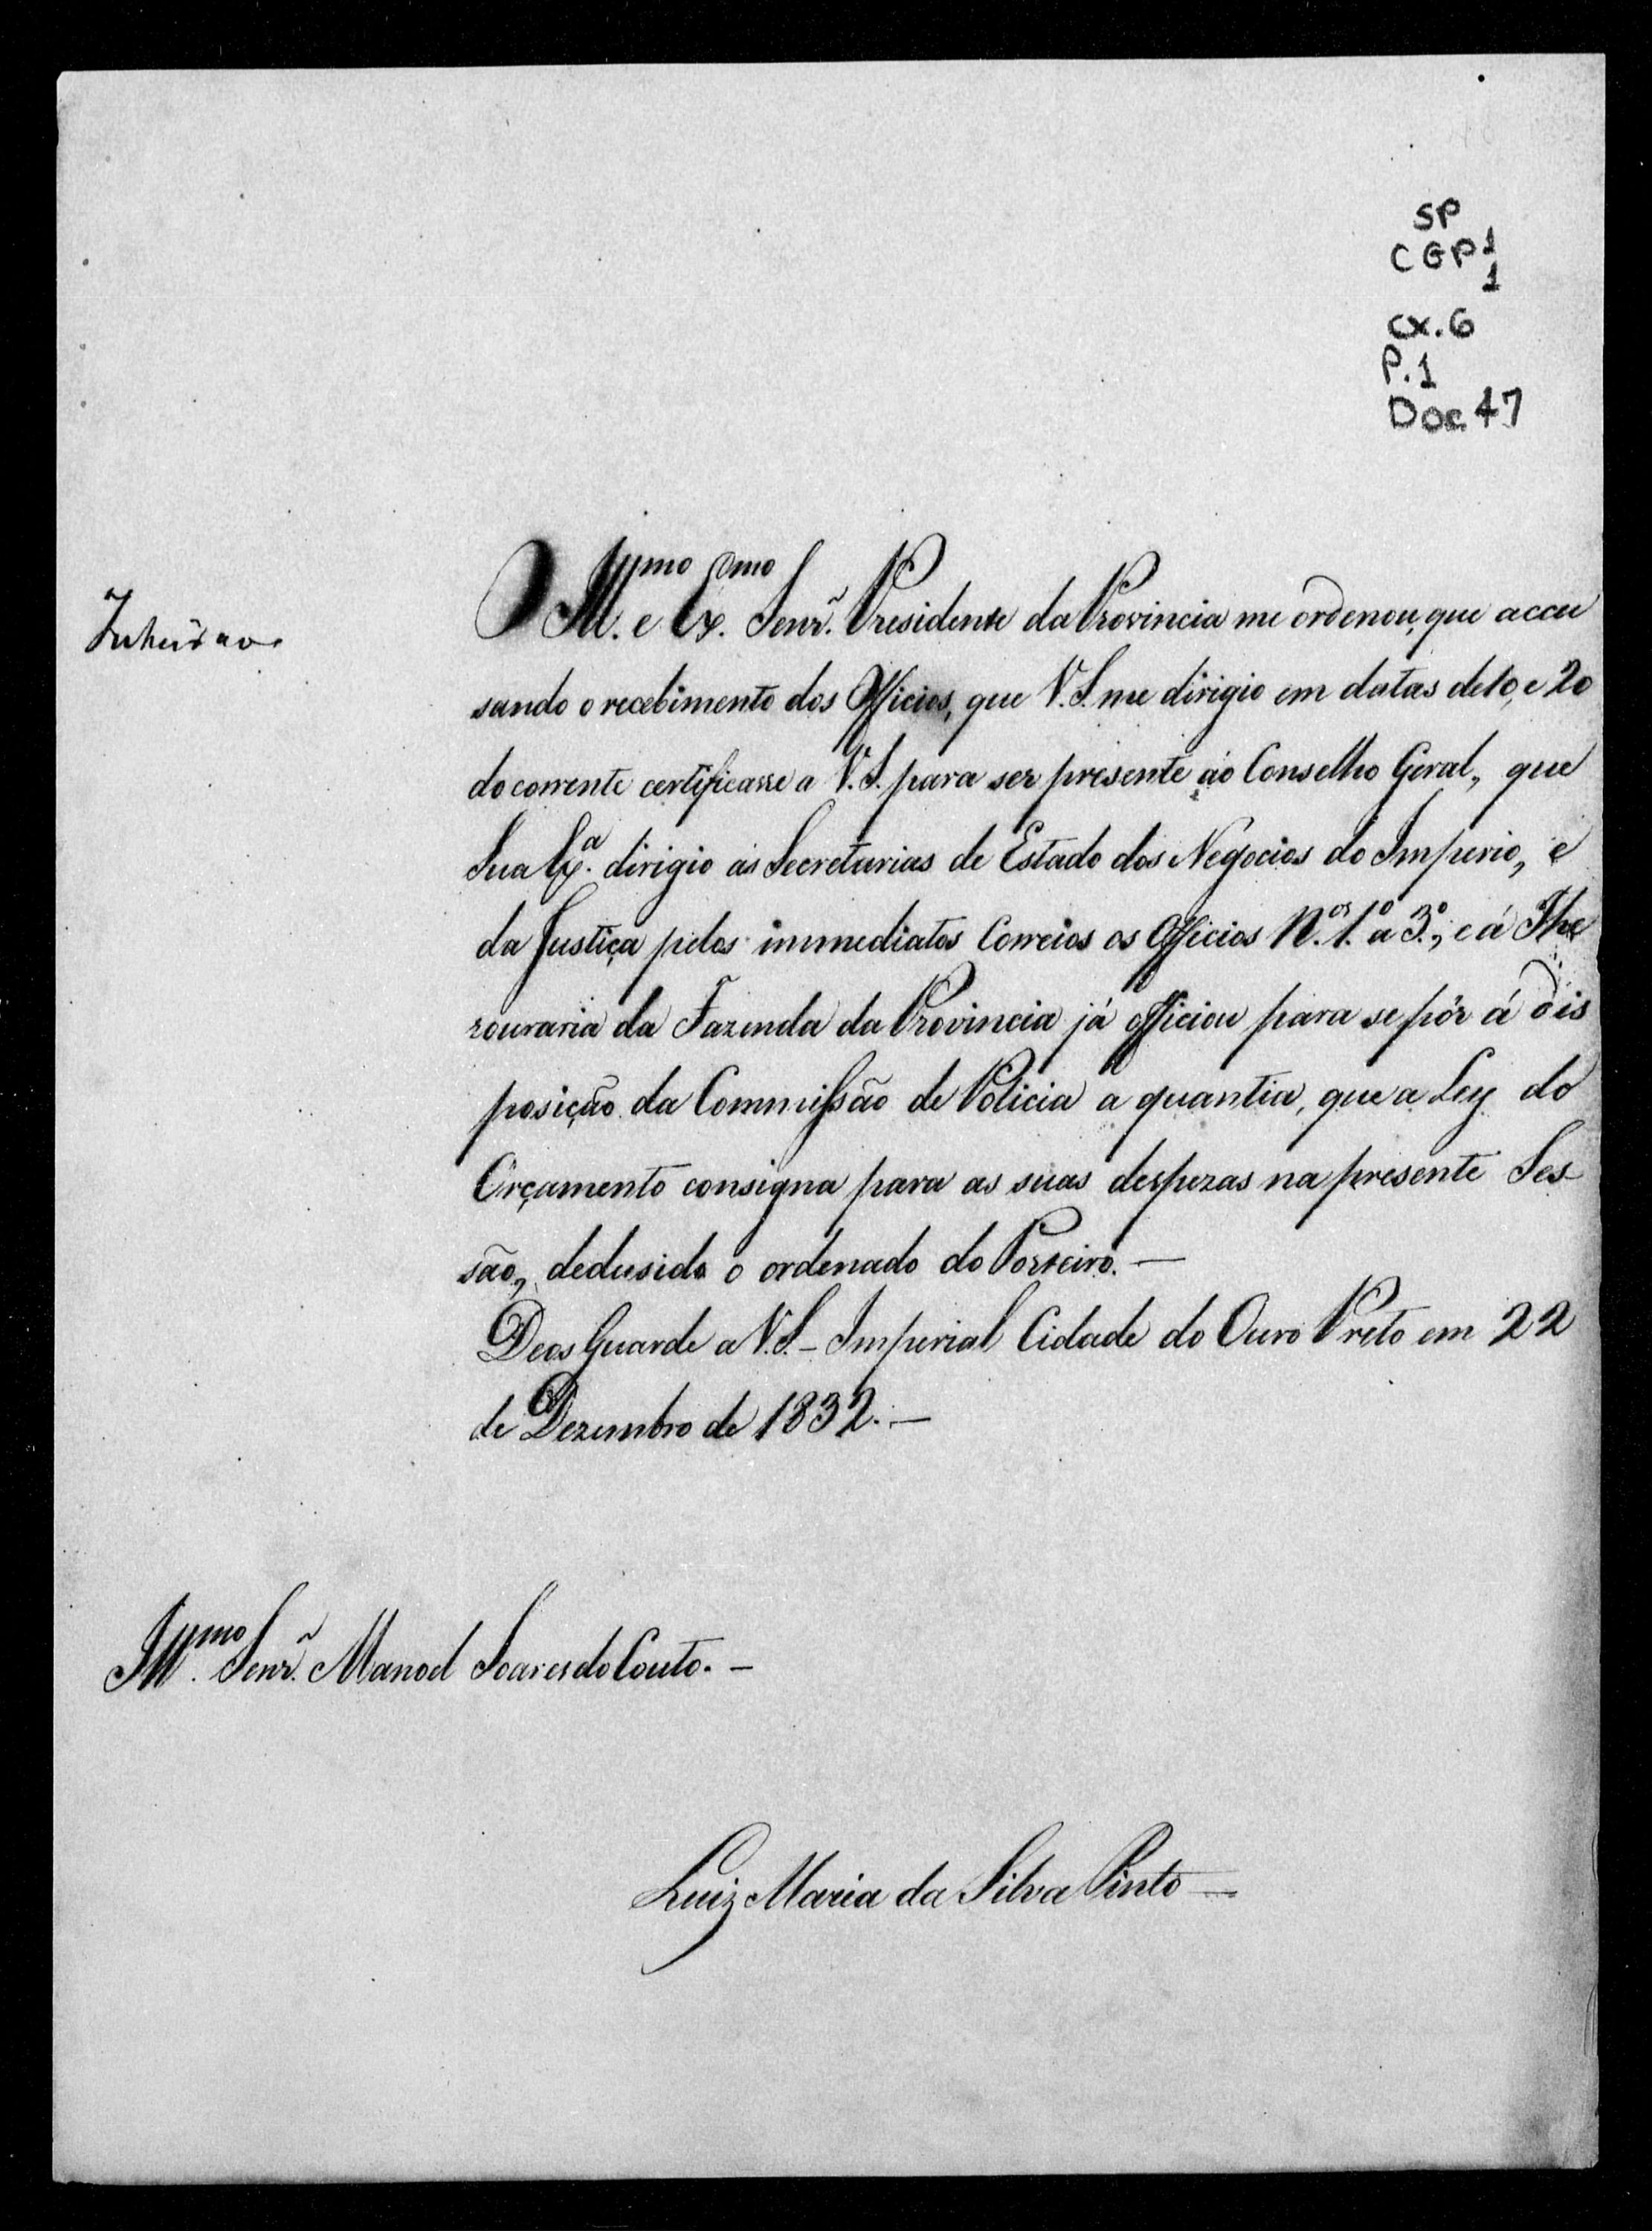 SP
CGP 1
1
cx. 6
P. 1
Doc 47
O Ill.mo e Ex.mo Senr. Presidente da Provincia me ordenou, que accu
sando o recebimento dos Officios, que V. S. me dirigio em datas de 10, e 20
do corrente certificasse a V. S. para ser presente ao Conselho Geral, que
Sua Ex.a dirigio ás Secretarias de Estado dos Negocios do Imperio, e
da Justiça pelos immediatos Correios os Officios N.os 1.o a 3.o, e á The
zouraria da Fazenda da Provincia já officiou para se pôr á dis
posição da Commissão de Policia a quantia, que a Ley do
Orçamento consigna para as suas despezas na presente Ses-
são, dedusido o ordenado do Porteiro. —
Deos Guarde a V. S. - Imperial Cidade do Ouro Preto em 22
de Dezembro de 1832. —
Ill.mo Senr. Manoel Soares do Couto. -
Luiz Maria da Silva Pinto —